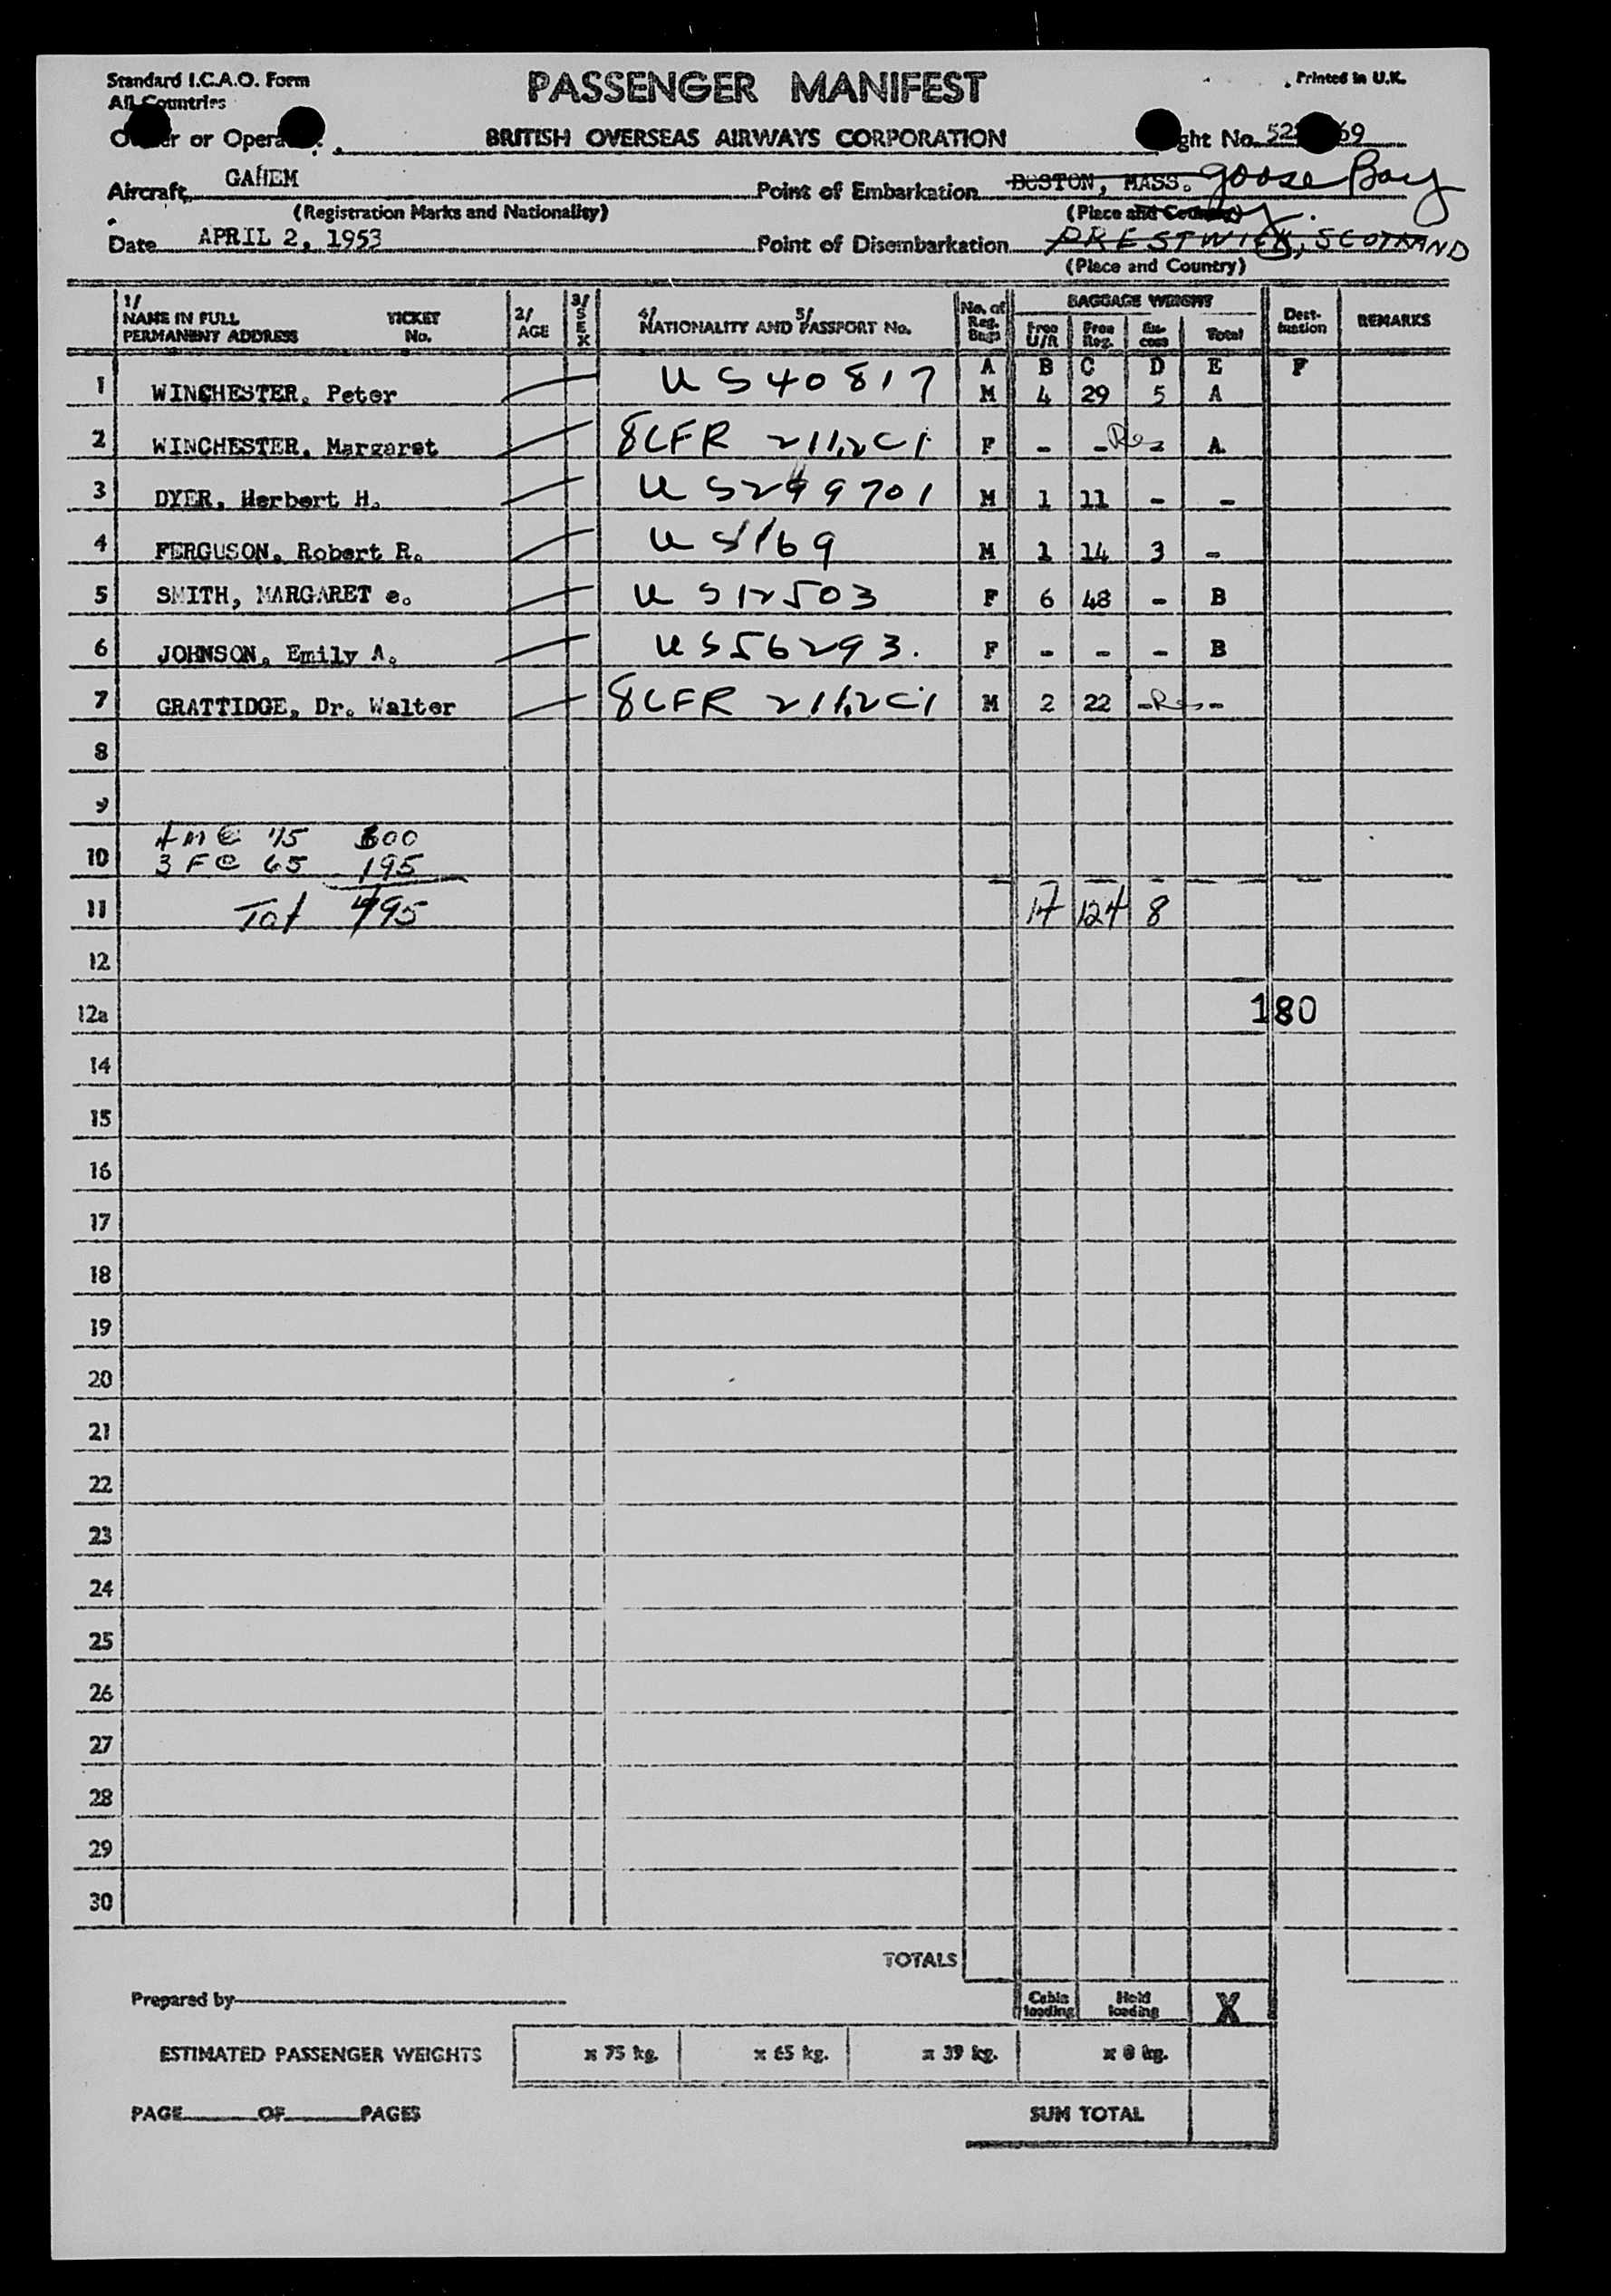 Standard I.C.A.O. Form
All Countries
PASSENGER MANIFEST
Printed in U.K.
or Opera
BRITISH OVERSEAS AIRWAYS CORPORATION
ght No. 52 69
Aircraft GAHEM
Point of Embarkation BOSTON, MASS. Goose Bay
(Registration Marks and Nationality)
(Place and Country)
Date APRIL 2, 1953
Point of Disembarkation PRESTWICK, SCOTLAND
(Place and Country)
1/ NAME IN FULL PERMANENT ADDRESS TICKET No. 2/ AGE 3/ SEX 4/ 5/ NATIONALITY AND PASSPORT No. No. of Reg. Bags BAGGAGE WEIGHT Free U/R Free Reg. Ex-cess Total Dest-ination REMARKS
A B C D E F
1 WINCHESTER, Peter US40817 M 4 29 5 A
2 WINCHESTER, Margaret 8CFR 211.2C1 F - - Res - A
3 DYER, Herbert H. US299701 M 1 11 - -
4 FERGUSON, Robert R. US1169 M 1 14 3 -
5 SMITH, MARGARET e. US12503 F 6 48 - B
6 JOHNSON, Emily A. US56293. F - - - B
7 GRATTIDGE, Dr. Walter 8CFR 211.2C1 M 2 22 - Res -
8
9
4 M @ 75 300
10 3 F @ 65 195
11 Tot 495 14 124 8
12
12a 180
14
15
16
17
18
19
20
21
22
23
24
25
26
27
28
29
30
TOTALS
Prepared by
Cabin loading Hold loading X
ESTIMATED PASSENGER WEIGHTS x 75 kg. x 65 kg. x 39 kg. x 8 kg.
PAGE OF PAGES
SUM TOTAL